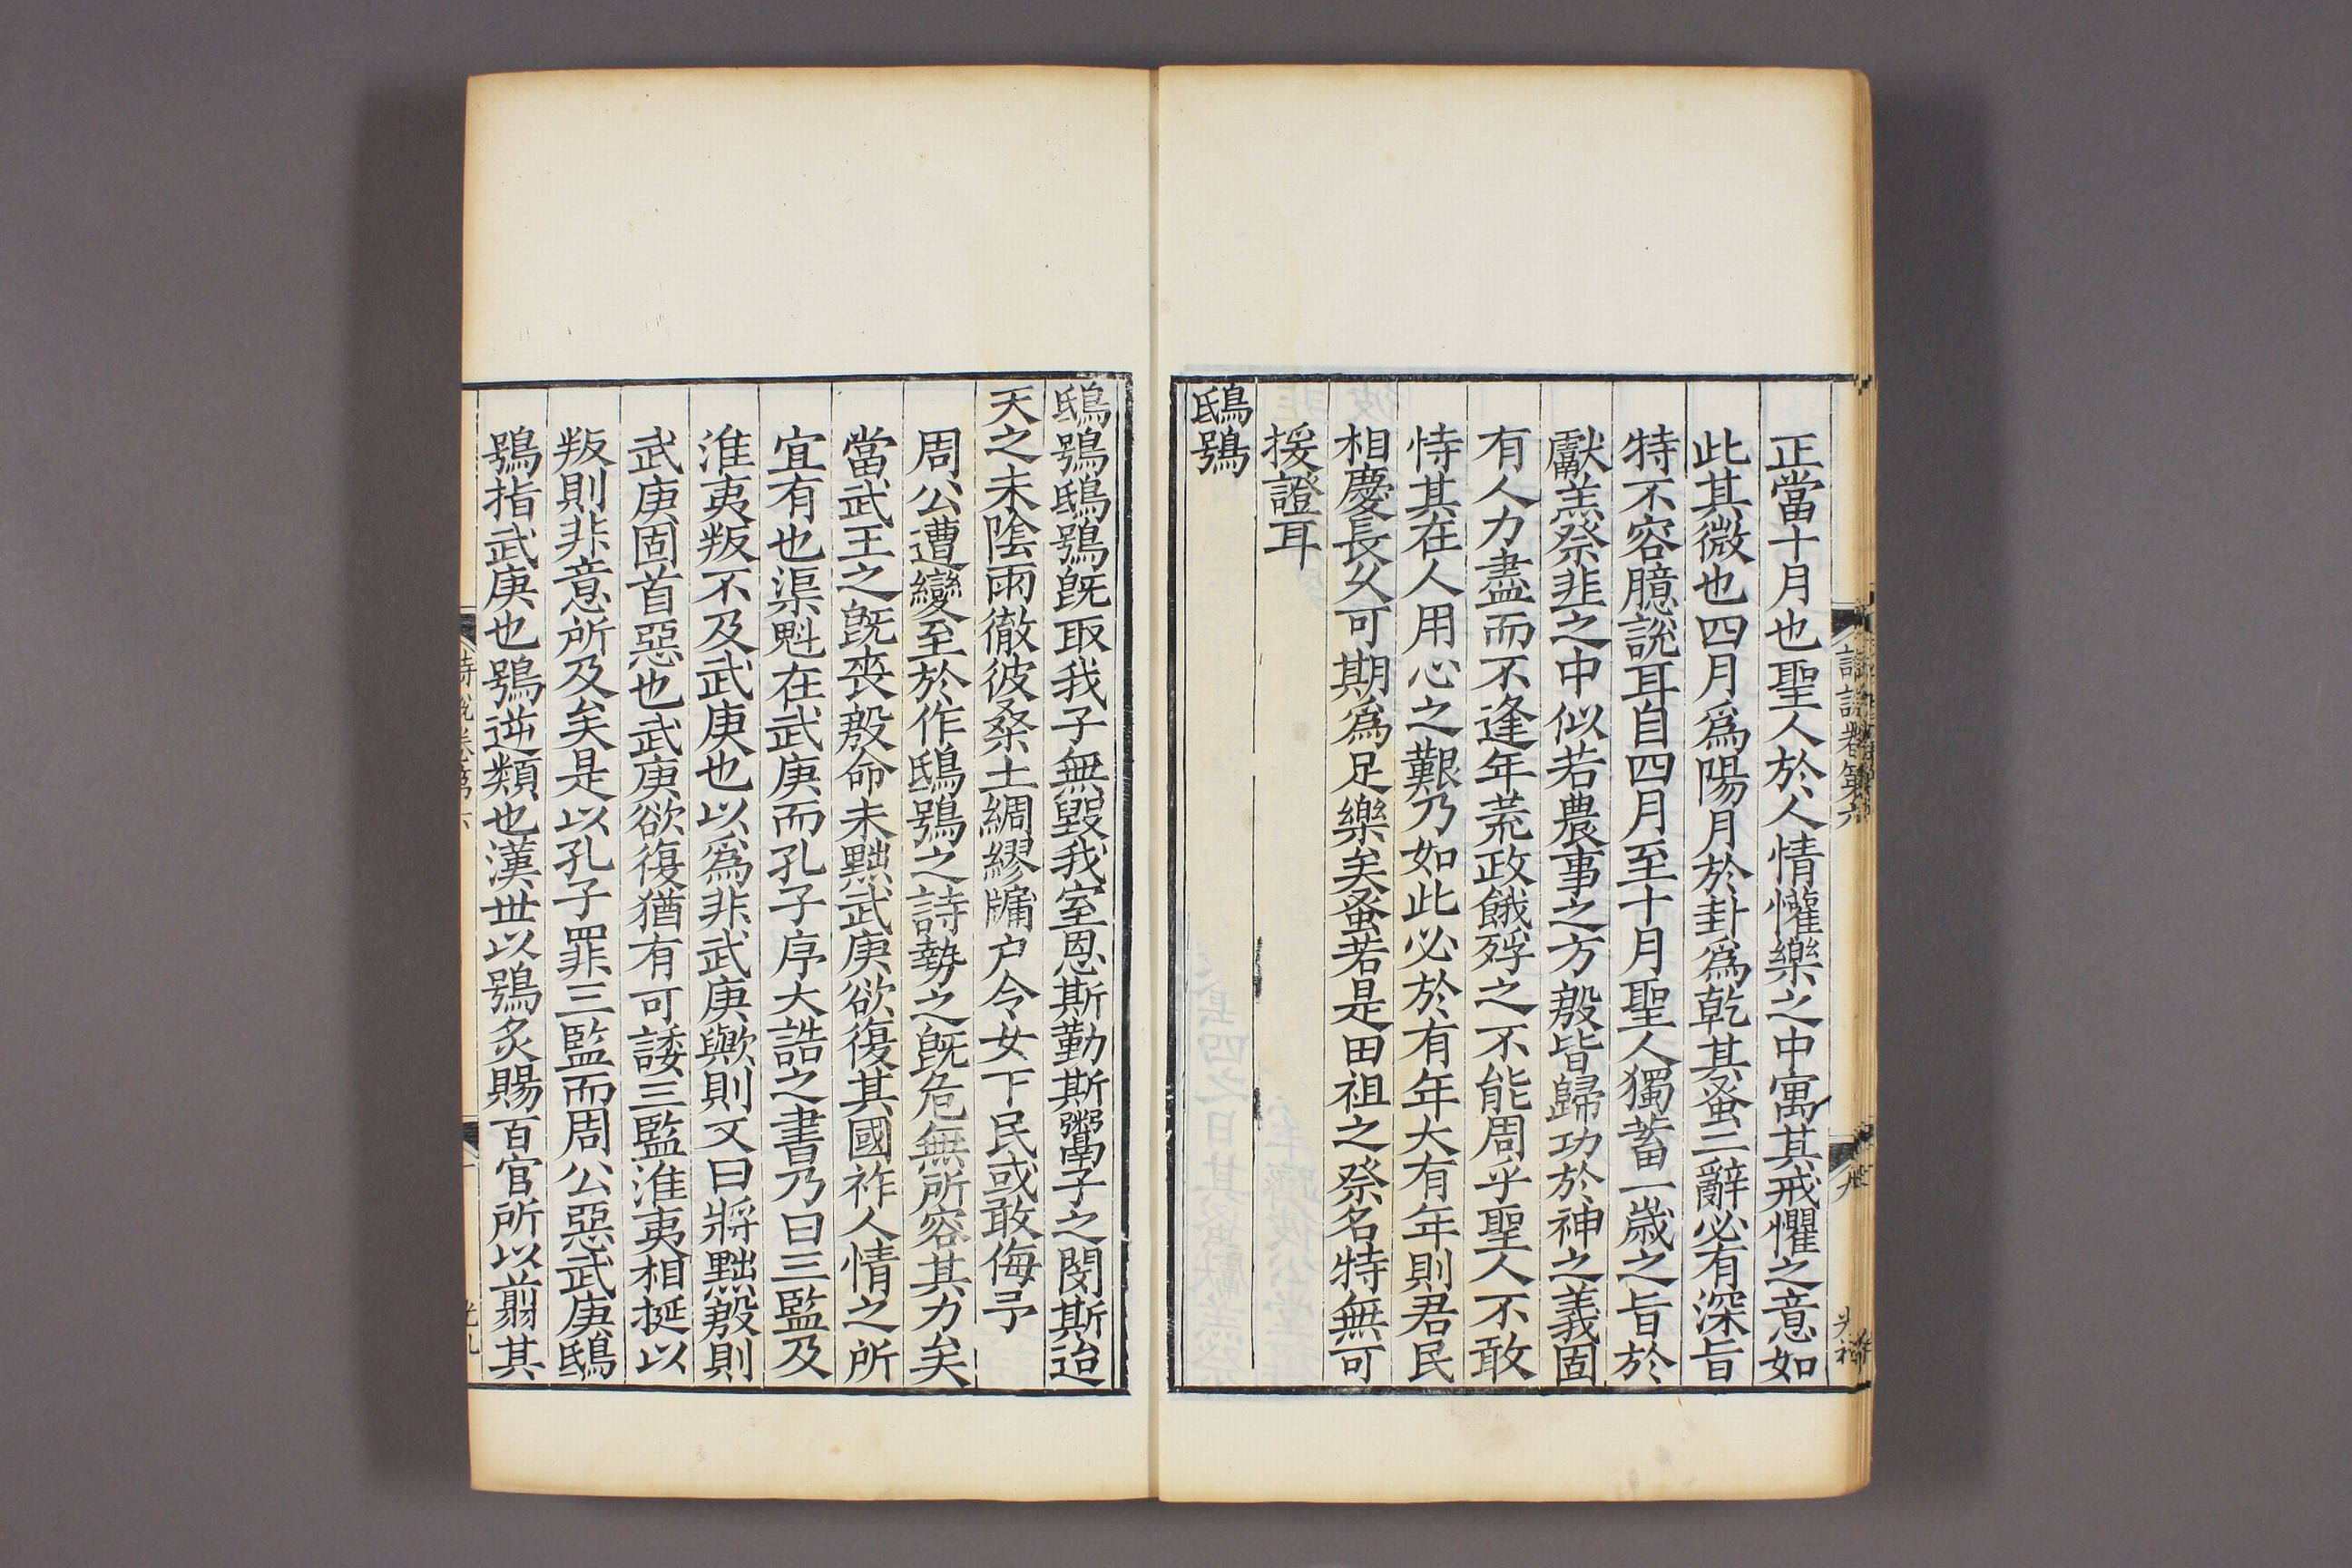 正當十月也聖人於人情懽樂之中寓其戒懼之意如
此其微也四月爲陽月於卦爲乾其蚤二辭必有深旨
特不容臆說耳自四月至十月聖人獨蓄一歲之旨於
獻羔祭韭之中似若農事之方殷皆歸功於神之義固
有人力盡而不逢年荒政餓殍之不能周乎聖人不敢
恃其在人用心之艱乃如此必於有年大有年則君民
相慶長父可期爲足樂矣蚤若是田祖之祭名特無可
援證耳
鴟鴞
鴟鴞鴟鴞旣取我子無毀我室恩斯勤斯鬻子之閔斯迨
天之未隂雨徹彼桑土綢繆牖户今女下民或敢侮予
周公遭變至於作鴟鴞之詩勢之旣危無所容其力矣
當武王之旣喪殷命未黜武庚欲復其國祚人情之所
宜有也渠魁在武庚而孔子序大誥之書乃曰三監及
淮夷叛不及武庚也以爲非武庚歟則文曰將黜殷則
武庚固首惡也武庚欲復猶有可諉三監淮夷相挻以
叛則非意所及矣是以孔子罪三監而周公惡武庚鴟
鴞指武庚也鴞逆類也漢世以鴞炙賜百官所以翦其
詩說卷第六